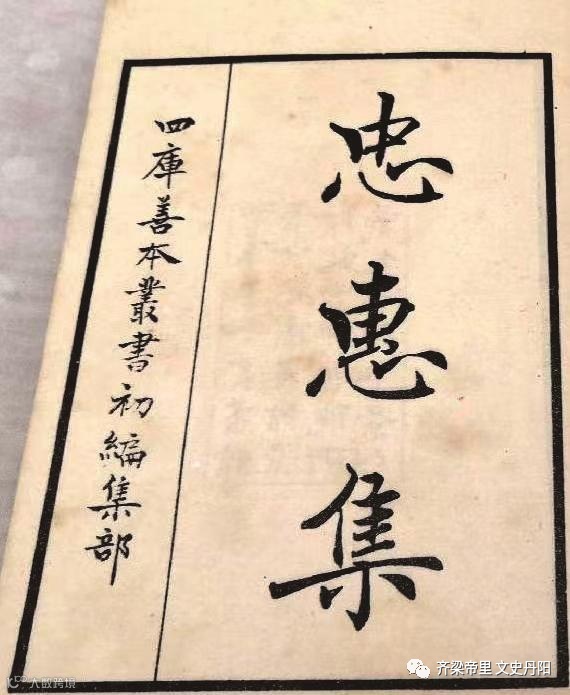 忠惠集
四庫善本叢書初編集部
齐梁帝里 文史丹阳
大数跨境